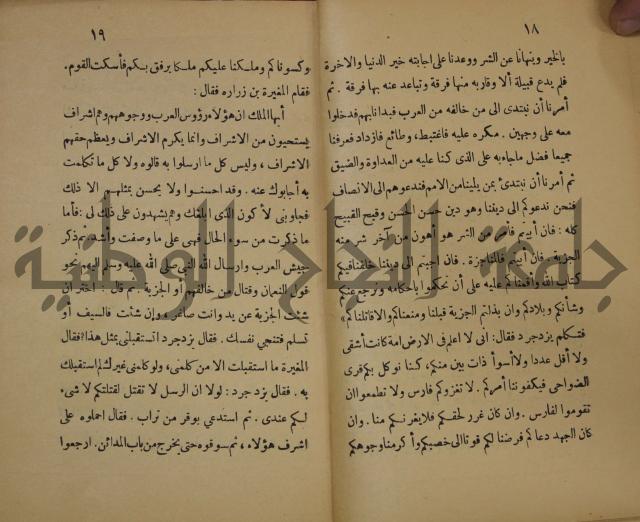 ١٨
بالخير وينهانا عن الشر ووعدنا على اجابته خير الدنيا والاخرة
فلم يدع قبيلة ألا وقاربه منها فرقة وتباعد عنه بها فرقة . ثم
أمرنا أن نبتدى الى من خالفه من العرب فبدأنا بهم فدخلوا
معه على وجهين . مكره عليه فاغتبط، وطائع فازداد فعرفنا
جميعا فضل ماجاء به على الذى كنا عليه من العداوة والضيق
ثم أمرنا أن نبتدئ بمن يلينا من الامم فندعوهم الى الانصاف
فنحن ندعوكم الى ديننا وهو دين حسن الحسن وقبح القبيح
كله : فان أبيتم فأمر من الشر هو أهون من آخر شر منه
الجزية . فان أبيتم فالمناجزة . فان اجبتم الى ديننا خلفنا فيكم
كتاب الله وأقمناكم عليه على أن تحكموا باحكامه ونرجع عنكم
وشأنكم وبلادكم وان بذلتم الجزية قبلنا ومنعناكم والا قاتلناكم»
فتكلم يزدجرد فقال : انى لا اعلم فى الارض امة كانت أشقى
ولا أقل عددا ولا أسوأ ذات بين منكم، كنا نوكل بكم قرى
الضواحي فيكفوننا أمركم . لا تغزوكم فارس ولا تطمعوا ان
تقوموا لفارس . وان كان غرر لحقكم فلا يغرنكم منا . وان
كان الجهد دعاكم فرضنا لكم قوتا الى خصبكم وأكرمنا وجوهكم
١٩
وكسوناكم وملكنا عليكم ملكا يرفق بكم فأسكت القوم.
فقام المغيرة بن زراره فقال :
أيها الملك ان هؤلاء رؤوس العرب ووجوههم وهم اشراف
يستحيون من الاشراف وانما يكرم الاشراف ويعظم حقهم
الاشراف ، وليس كل ما ارسلوا به قالوه ولا كل ما تكلمت
به أجابوك عنه . وقد احسنوا ولا يحسن بمثلهم الا ذلك
فجاوبنى لأ كون الذى ابلغك وهم يشهدون على ذلك لى : فأما
ما ذكرت من سوء الحال فهى على ما وصفت وأشد ثم ذكر
عيش العرب وارسال الله النبى صلى الله عليه وسلم اليهم نحو
قول النعمان وقتال من خالفهم أو الجزية . ثم قال : اختر ان
شئت الجزية عن يد وانت صاغر، وإن شئت فالسيف أو
تسلم فتنجي نفسك . فقال يزدجرد اتستقبلنى بمثل هذا؟ فقال
المغيرة ما استقبلت الا من كلمنى، ولو كلمنى غيرك لم استقبلك
به . فقال يزدجرد : لولا ان الرسل لا تقتل لقتلتكم لا شىء
لكم عندى . ثم استدعي بوقر من تراب . فقال احملوه على
اشرف هؤلاء ، ثم سوقوه حتى يخرج من باب المدائن . ارجعوا
جامعة النجاح الوطنية